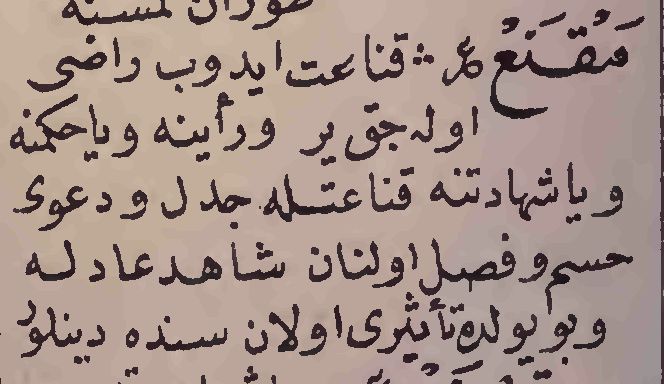 طوران لمسنه
مَقْنَعْ عر قناعت ايدوب راضى
اوله جق ير ورأينه وياحكمنه
وياشهادتنه قناعتله جدل ودعوى
حسم وفصل اولنان شاهد عادله
وبو يولده تأثيرى اولان سنده دينلور